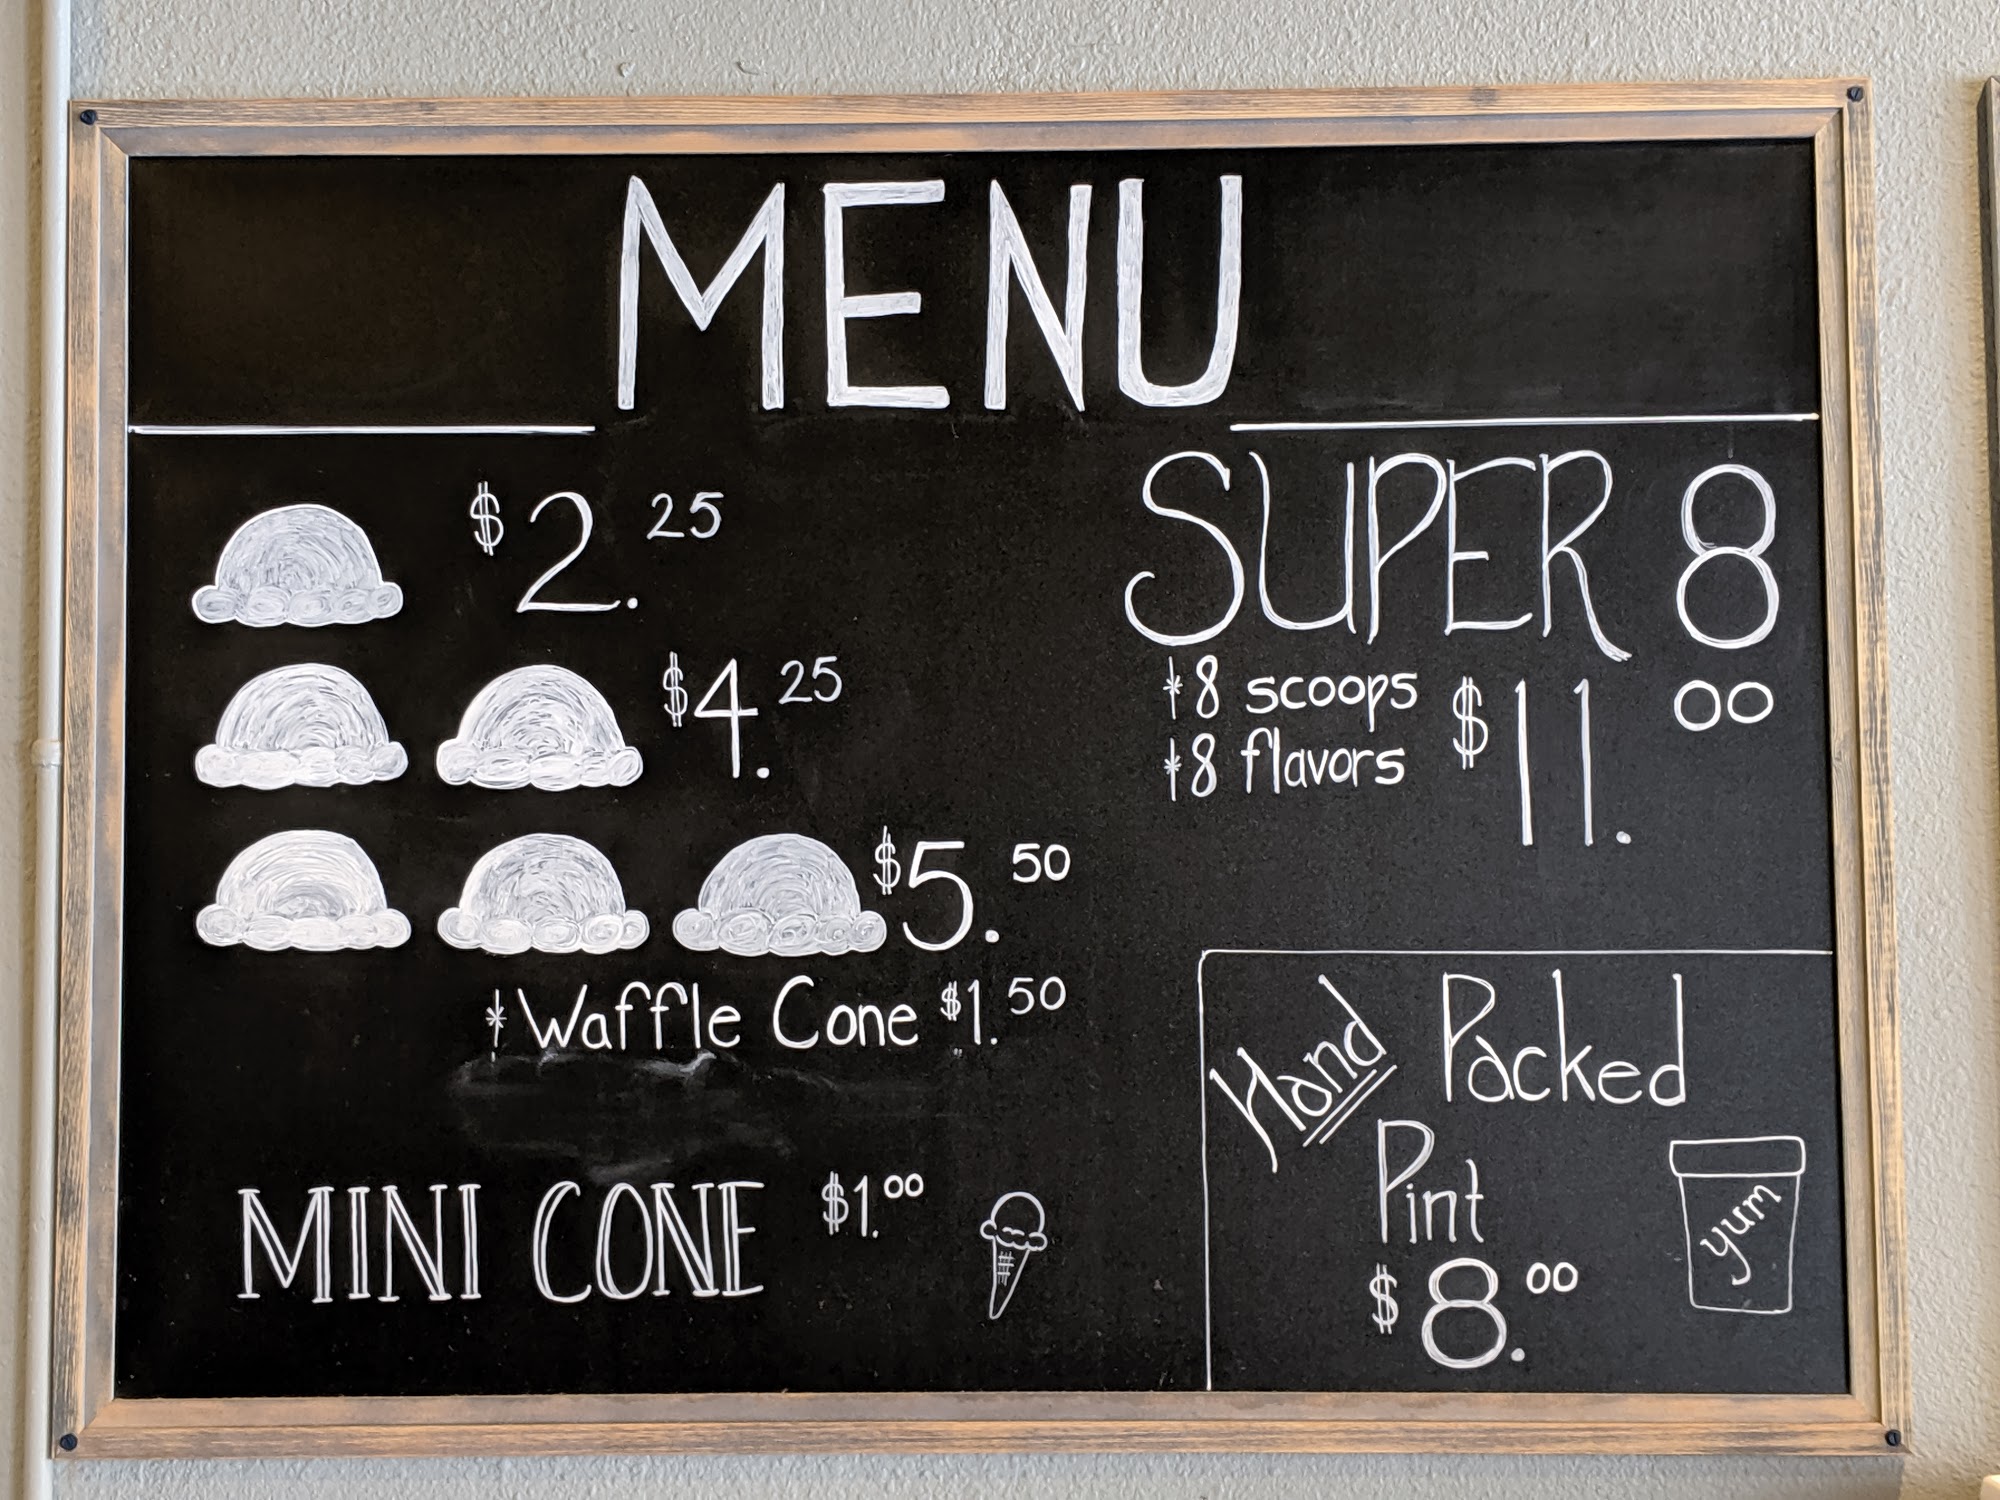 MENU
$2.25
$4.25
$5.50
*Waffle Cone $1.50
MINI CONE $1.00
SUPER 8
*8 scoops
*8 flavors
$11.00
Hand Packed
Pint
$8.00
yum